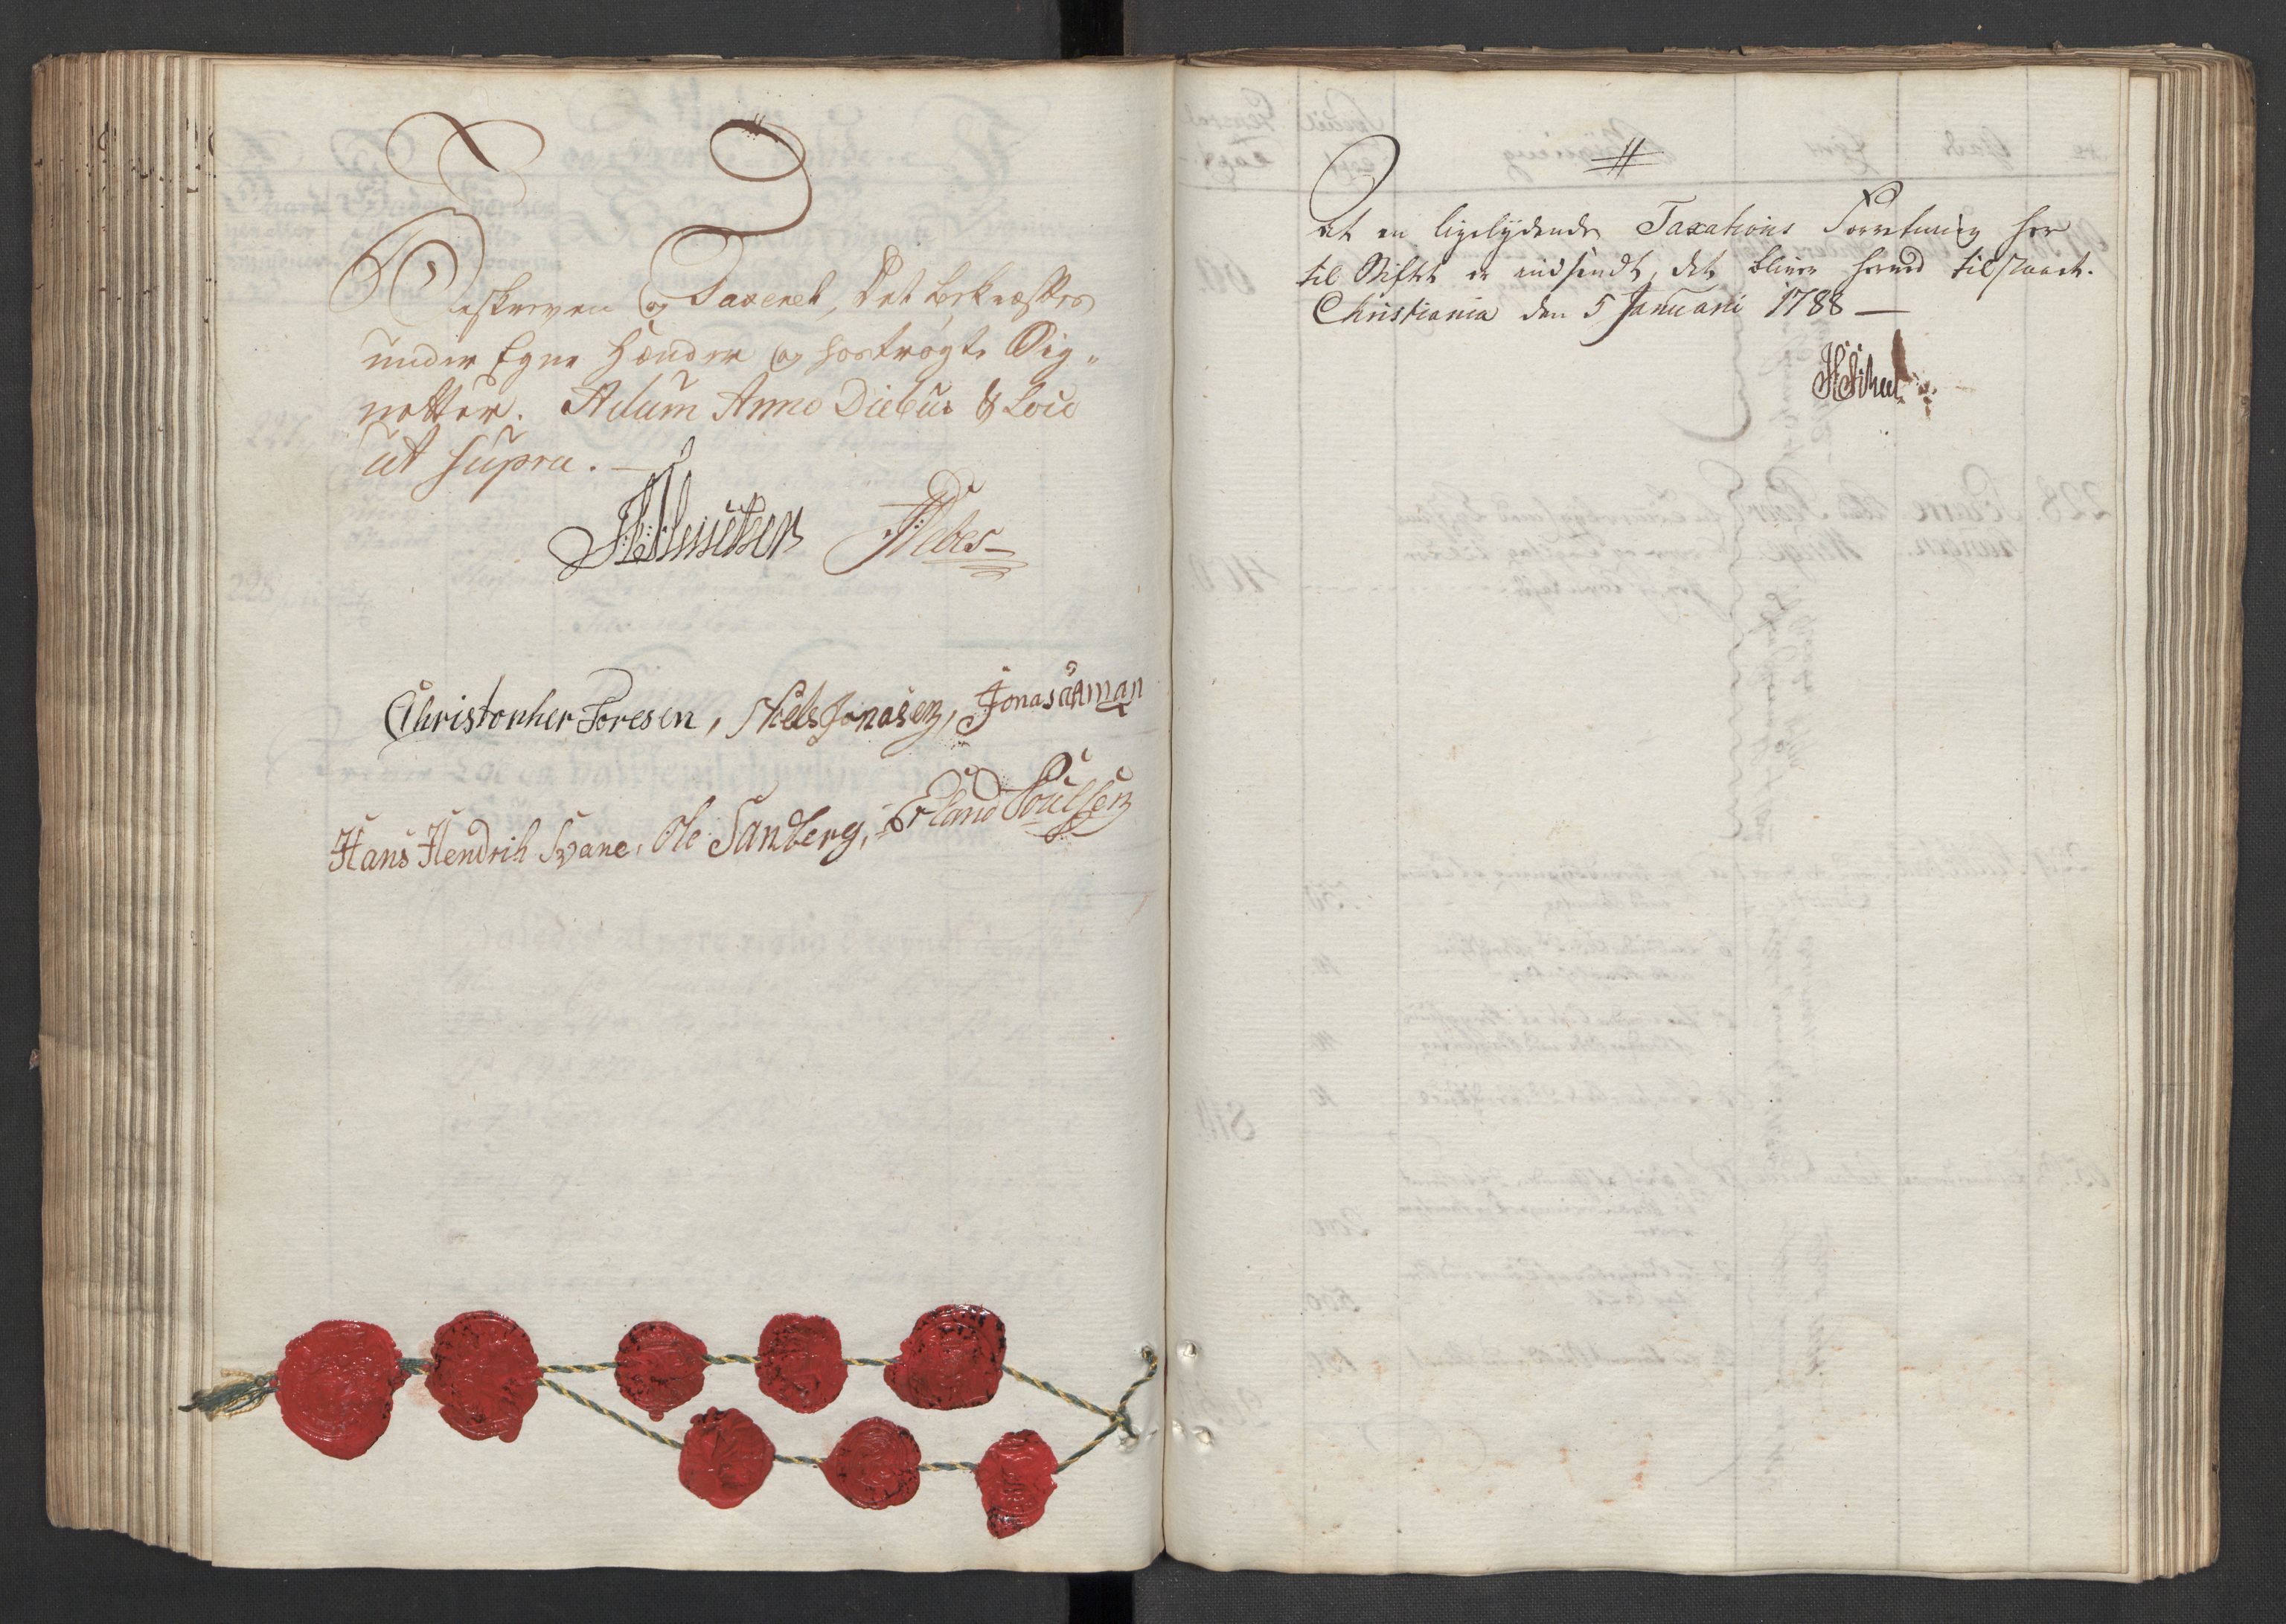 Beskreven og Taxeret, Det bekræftes
under Egne Hænder og hostrøgte Sig„
netter. Actum Anno Diebus & Loco
ut supra. —
Debes
Christopher Toresen, Niels Jonasen, Jonas Aaman
Hans Hendrik Svane, Ole Sandberg, Erland Poulsen
At en ligelydende Taxations Forretning her
til Stiftet er indsendt, det bliver herved tilstaaet.
Christiania den 5 Januarii 1788 —